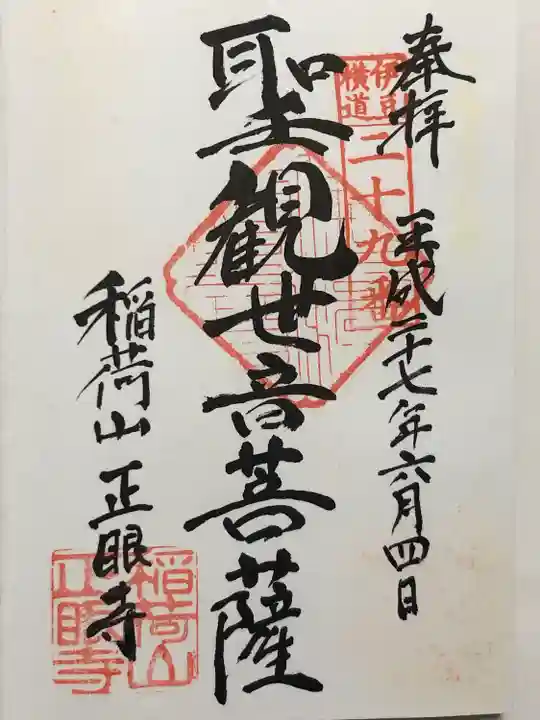 奉拝 平成二十七年六月四日
伊豆
横道
二十九番
聖観世音菩薩
稲荷山 正眼寺
稲荷山
正眼寺